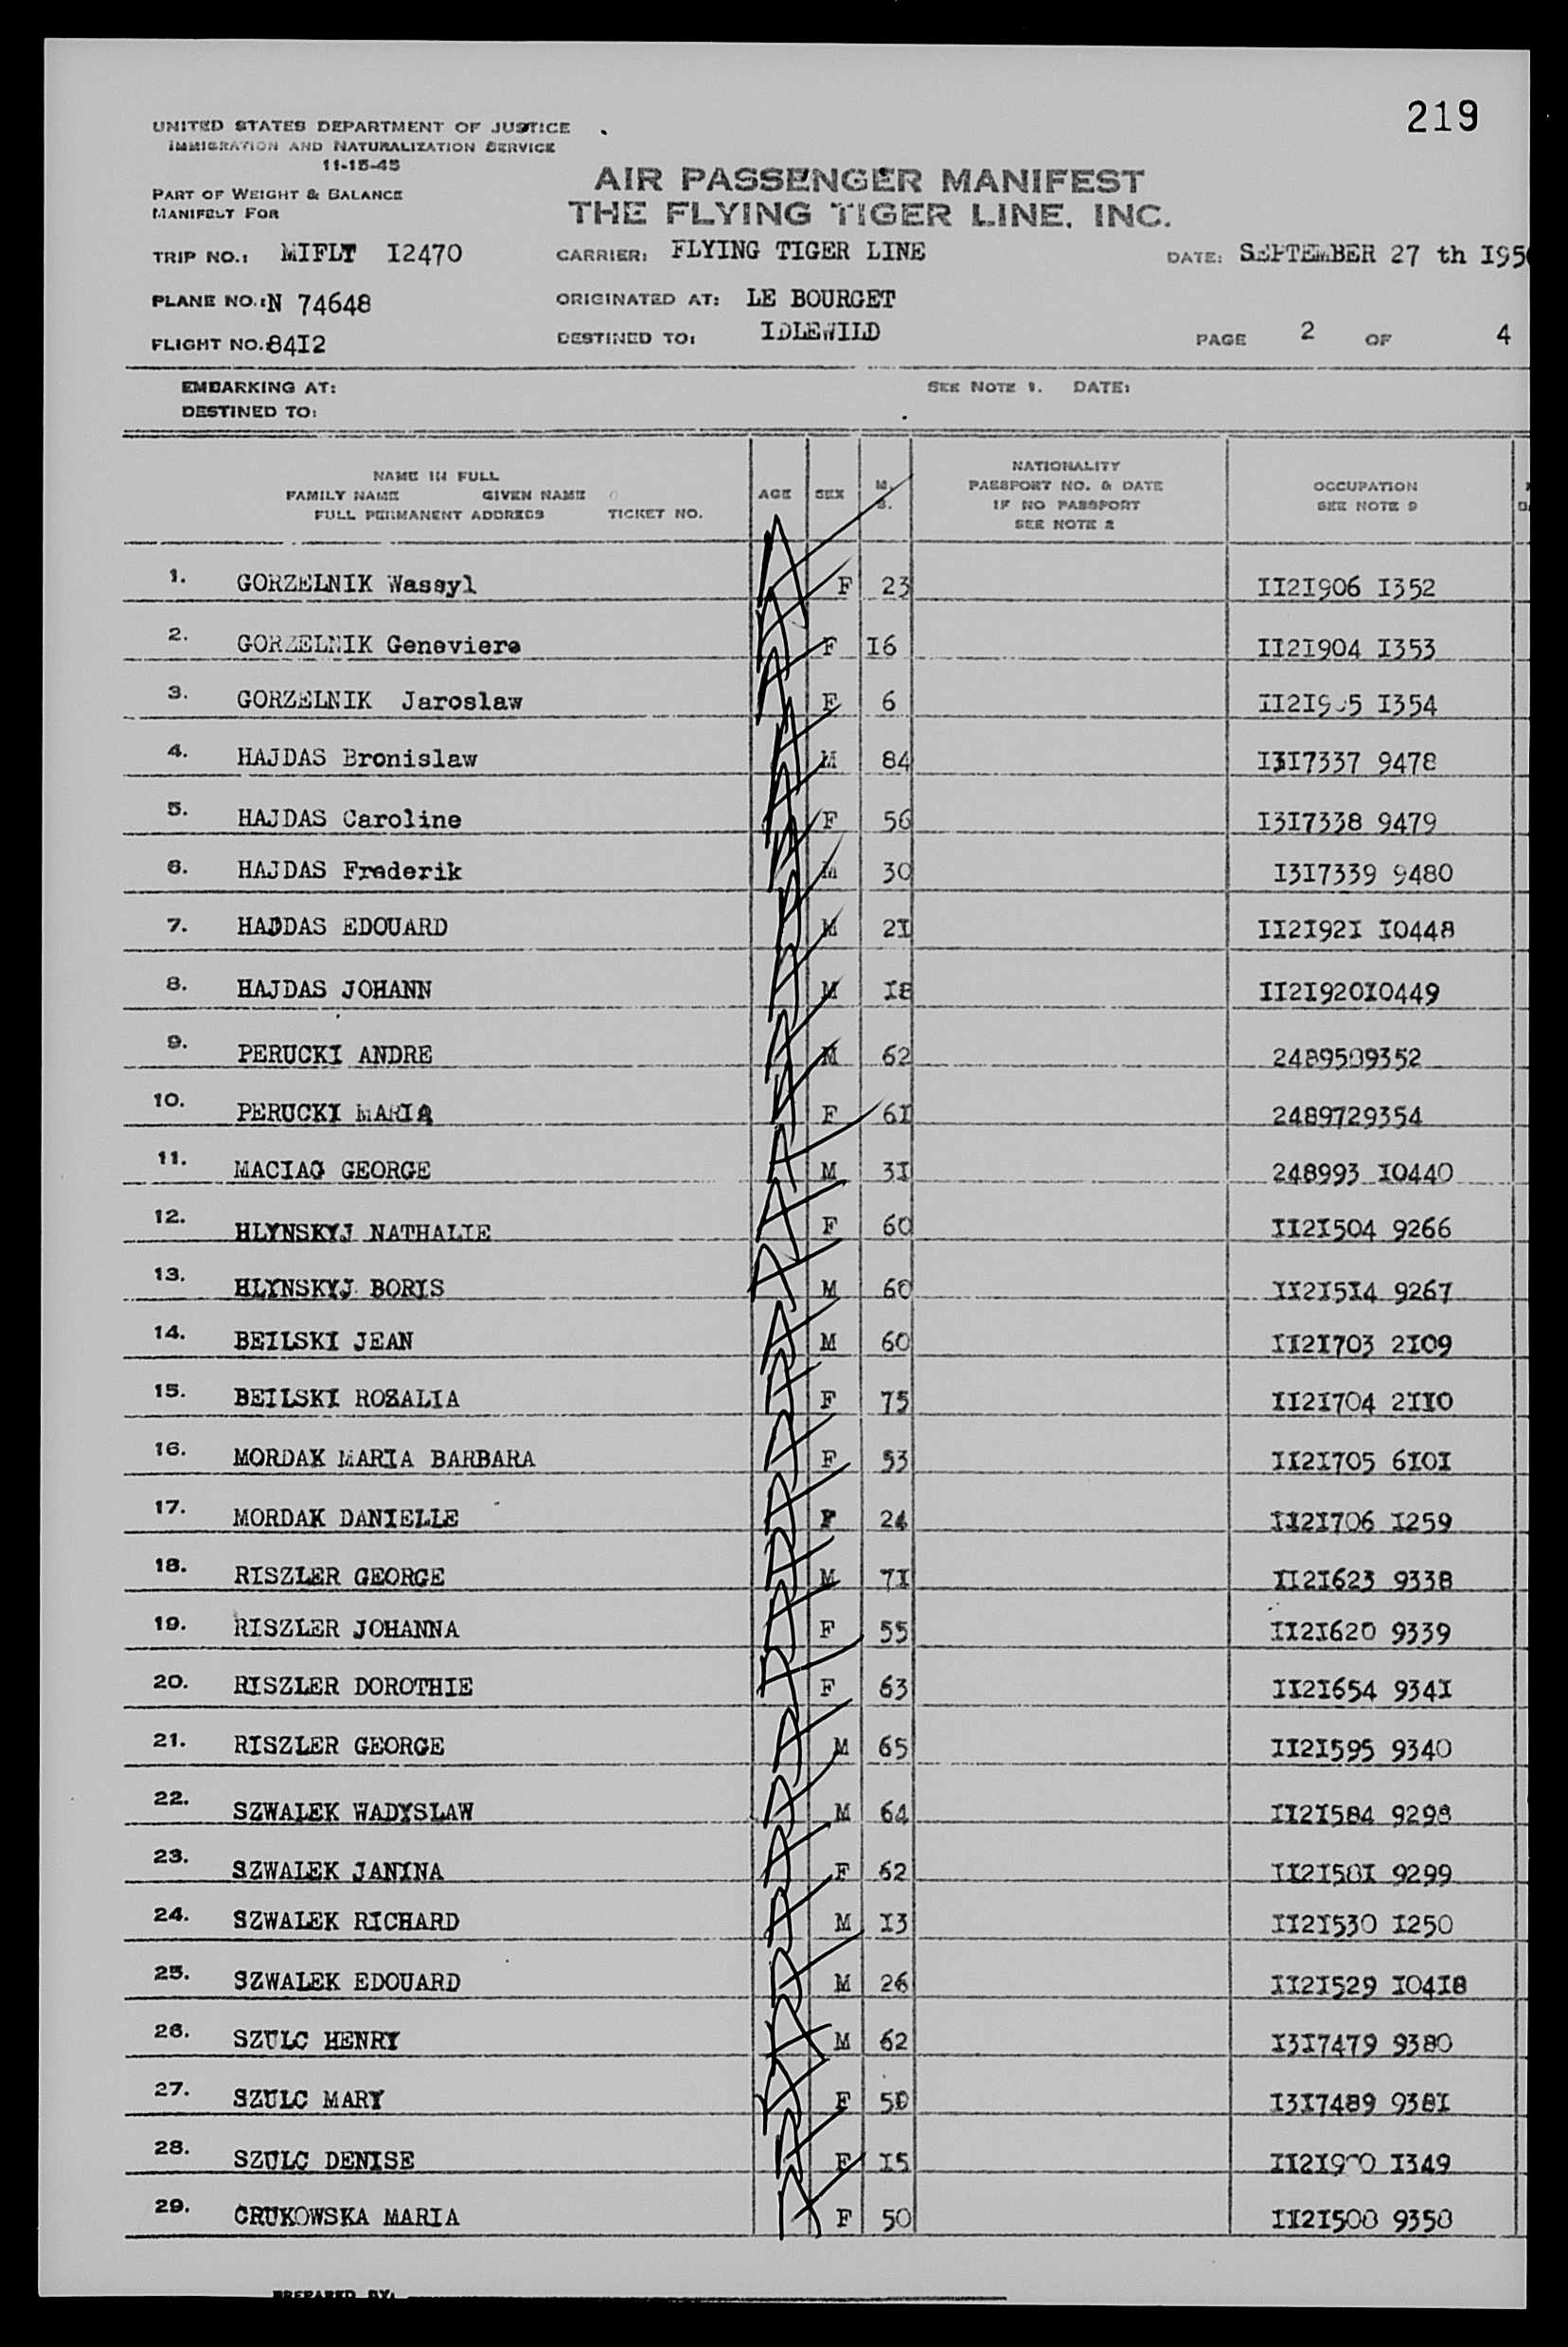 219
UNITED STATES DEPARTMENT OF JUSTICE
IMMIGRATION AND NATURALIZATION SERVICE
11-15-45
PART OF WEIGHT & BALANCE
MANIFEST FOR
AIR PASSENGER MANIFEST
THE FLYING TIGER LINE, INC.
TRIP NO.: MIFLT I2470 CARRIER: FLYING TIGER LINE DATE: SEPTEMBER 27 th I95
PLANE NO.: N 74648 ORIGINATED AT: LE BOURGET
FLIGHT NO. 84I2 DESTINED TO: IDLEWILD PAGE 2 OF 4
EMBARKING AT: SEE NOTE 1. DATE:
DESTINED TO:
NAME IN FULL
FAMILY NAME GIVEN NAME
FULL PERMANENT ADDRESS TICKET NO.
AGE
SEX
M.
S.
NATIONALITY
PASSPORT NO. & DATE
IF NO PASSPORT
SEE NOTE 2
OCCUPATION
SEE NOTE 9
1. GORZELNIK Wassyl F 23 II2I906 I352
2. GORZELNIK Geneviere F I6 II2I904 I353
3. GORZELNIK Jaroslaw F 6 I354
4. HAJDAS Bronislaw M 84 I3I7337 9478
5. HAJDAS Caroline F 56 I3I7338 9479
6. HAJDAS Frederik M 30 I3I7339 9480
7. HADDAS EDOUARD M 2I II2I92I I0448
8. HAJDAS JOHANN M I8 II2I920I0449
9. PERUCKI ANDRE M 62 2489509352
10. PERUCKI MARIA F 6I 2489729354
11. MACIAG GEORGE M 3I 248993 I0440
12. HLYNSKYJ NATHALIE F 60 II2I504 9266
13. HLYNSKYJ BORIS M 60 II2I5I4 9267
14. BEILSKI JEAN M 60 II2I703 2I09
15. BEILSKI ROZALIA F 75 II2I704 2II0
16. MORDAK MARIA BARBARA F 53 II2I705 6I0I
17. MORDAK DANIELLE F 24 II2I706 I259
18. RISZLER GEORGE M 7I II2I623 9338
19. RISZLER JOHANNA F 55 II2I620 9339
20. RISZLER DOROTHIE F 63 II2I654 934I
21. RISZLER GEORGE M 65 II2I595 9340
22. SZWALEK WADYSLAW M 64 II2I584 9298
23. SZWALEK JANINA F 62 II2I58I 9299
24. SZWALEK RICHARD M I3 II2I530 I250
25. SZWALEK EDOUARD M 26 II2I529 I04I8
26. SZULC HENRY M 62 I3I7479 9380
27. SZULC MARY F I3I7489 938I
28. SZULC DENISE F I5 I349
29. CRUKOWSKA MARIA F 50 II2I500 9350
PREPARED BY: